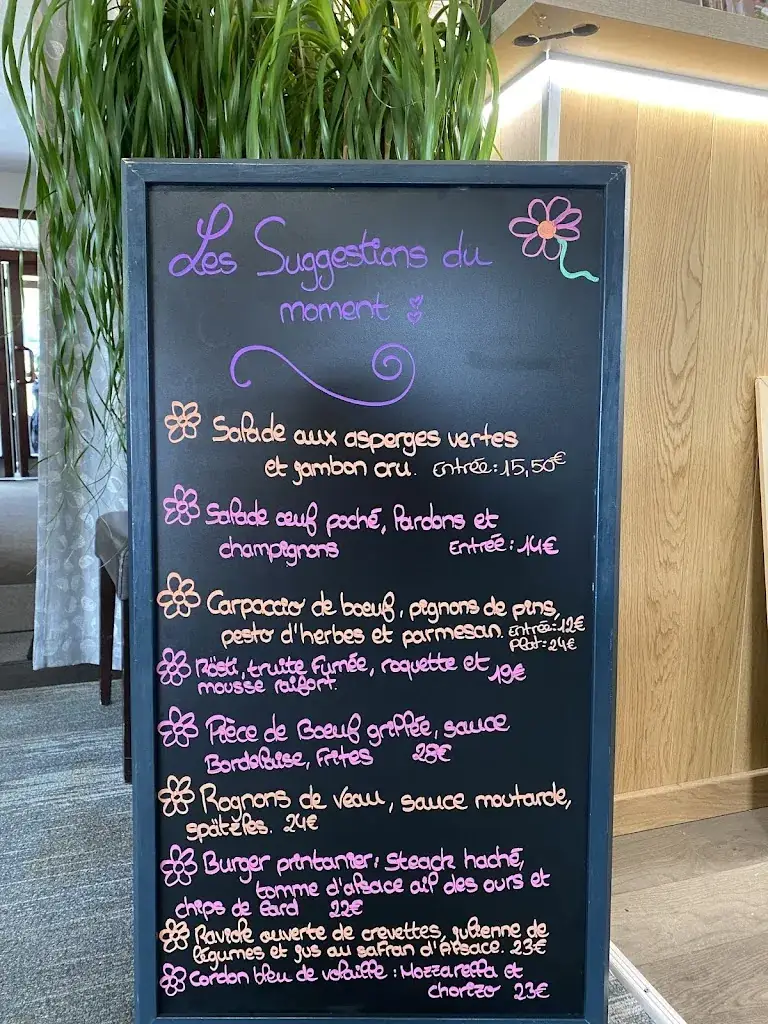 Les Suggestions du
moment
Salade aux asperges vertes
et jambon cru. Entrée : 15,50€
Salade œuf poché, lardons et
champignons Entrée : 14€
Carpaccio de boeuf, pignons de pins,
pesto d'herbes et parmesan. Entrée : 12€
Plat : 24€
Rösti, truite fumée, roquette et 19€
mousse raifort.
Pièce de Boeuf grillée, sauce
Bordelaise, Frites 28€
Rognons de Veau, sauce moutarde,
spätzles. 24€
Burger printanier : Steack haché,
tomme d'alsace ail des ours et
chips de lard 22€
Raviole ouverte de crevettes, julienne de
légumes et jus au safran d'Alsace. 23€
Cordon bleu de volaille : Mozzarella et
chorizo 23€